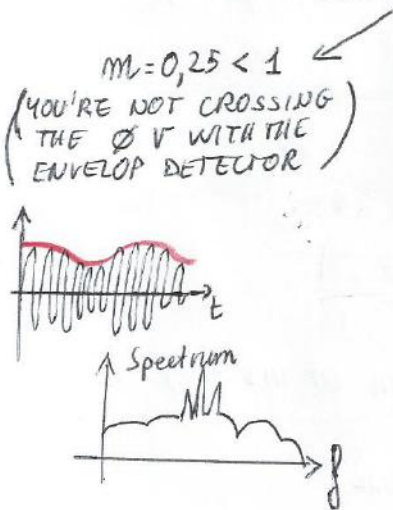 m = 0,25 < 1
(YOU'RE NOT CROSSING
THE Ø V WITH THE
ENVELOP DETECTOR)
t
Spectrum
f